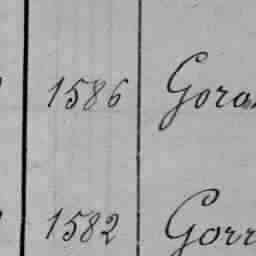 1586 Gora
1582 Gorr